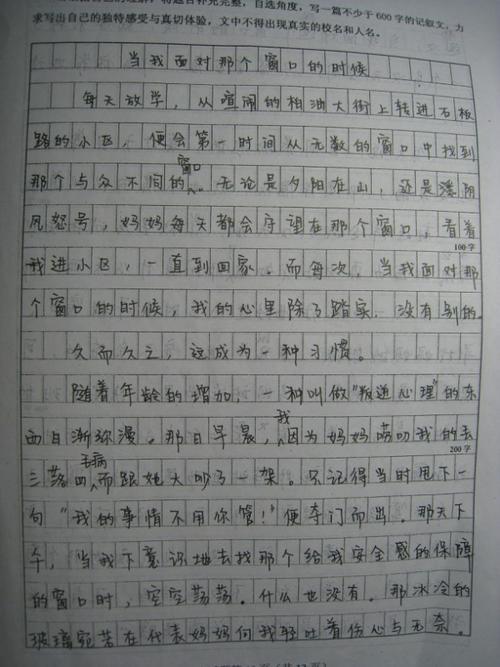 写一篇不少于600字的记叙文,力
求写出自己的独特感受与真切体验,文中不得出现真实的校名和人名。
当我面对那个窗口的时候
每天放学,从喧闹的柏油大街上转进石板
路的小区,便会第一时间从无数的窗口中找到
那个与众不同的窗口。无论是夕阳在山,还是
风怒号,妈妈每天都会守望在那个窗口,看着
100字
我进小区,一直到回家。而每次,当我面对那
个窗口的时候,我的心里除了踏实,没有别的。
久而久之,这成为一种习惯。
随着年龄的增加,一种叫做“叛逆心理”的东
西日渐弥漫。那日早晨,我因为妈妈唠叨我的丢
200字
三落四毛病而跟她大吵了一架。只记得当时甩下一
句“我的事情不用你管!”便夺门而出。那天下
午,当我下意识地去找那个给我安全感的保障
的窗口时,空空荡荡。什么也没有。那冰冷的
玻璃宛若在代表妈妈向我轻吐着伤心与无奈。